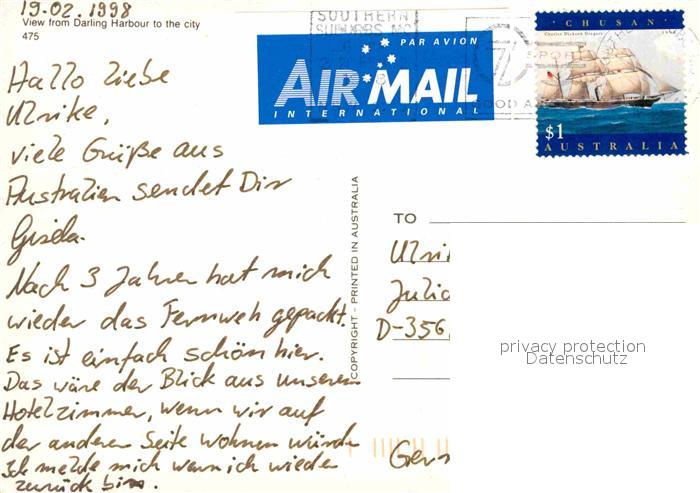 19.02.1998
View from Darling Harbour to the city
475
Hallo liebe
Ulrike,
viele Grüße aus
Australien sendet Dir
Gisela.
Nach 3 Jahren hat mich
wieder das Fernweh gepackt.
Es ist einfach schön hier.
Das wäre der Blick aus unserem
Hotelzimmer, wenn wir auf
der anderen Seite wohnen würden
Ich melde mich wenn ich wieder
zurück bin.
COPYRIGHT - PRINTED IN AUSTRALIA
SOUTHERN
SUBURBS MC
PAR AVION
AIR MAIL
INTERNATIONAL
7
CHUSAN
Charles Dickson Gregory
$1
AUSTRALIA
TO
Ulri
Julic
D-356
Ger
privacy protection
Datenschutz